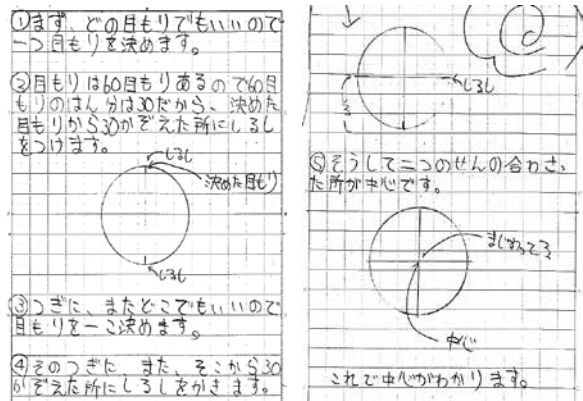 ①まず、どの目もりでもいいので
一つ目もりを決めます。
②目もりは60目もりあるので60目
もりのはん分は30だから、決めた
目もりから30かぞえた所にしるし
をつけます。
しるし
決めた目もり
しるし
③つぎに、またどこでもいいので
目もりを一こ決めます。
④そのつぎに、また、そこから30
かぞえた所にしるしをかきます。
しるし
⑤そうして二つのせんの合わさっ
た所が中心です。
まじわってる
中心
これで中心がわかります。